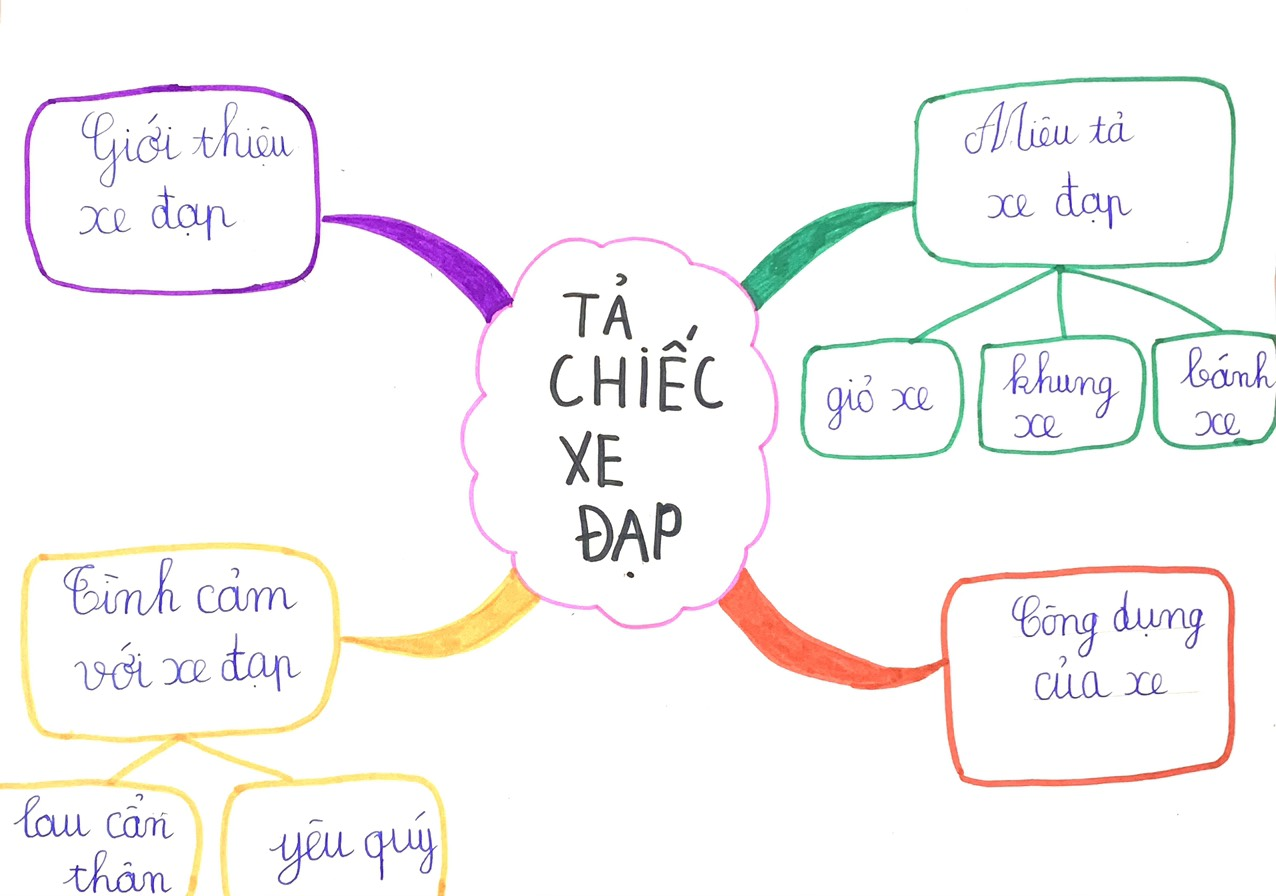 TẢ
CHIẾC
XE
ĐẠP
Giới thiệu
xe đạp
Miêu tả
xe đạp
giỏ xe
khung
xe
bánh
xe
Tình cảm
với xe đạp
lau cẩn
thân
yêu quý
Công dụng
của xe